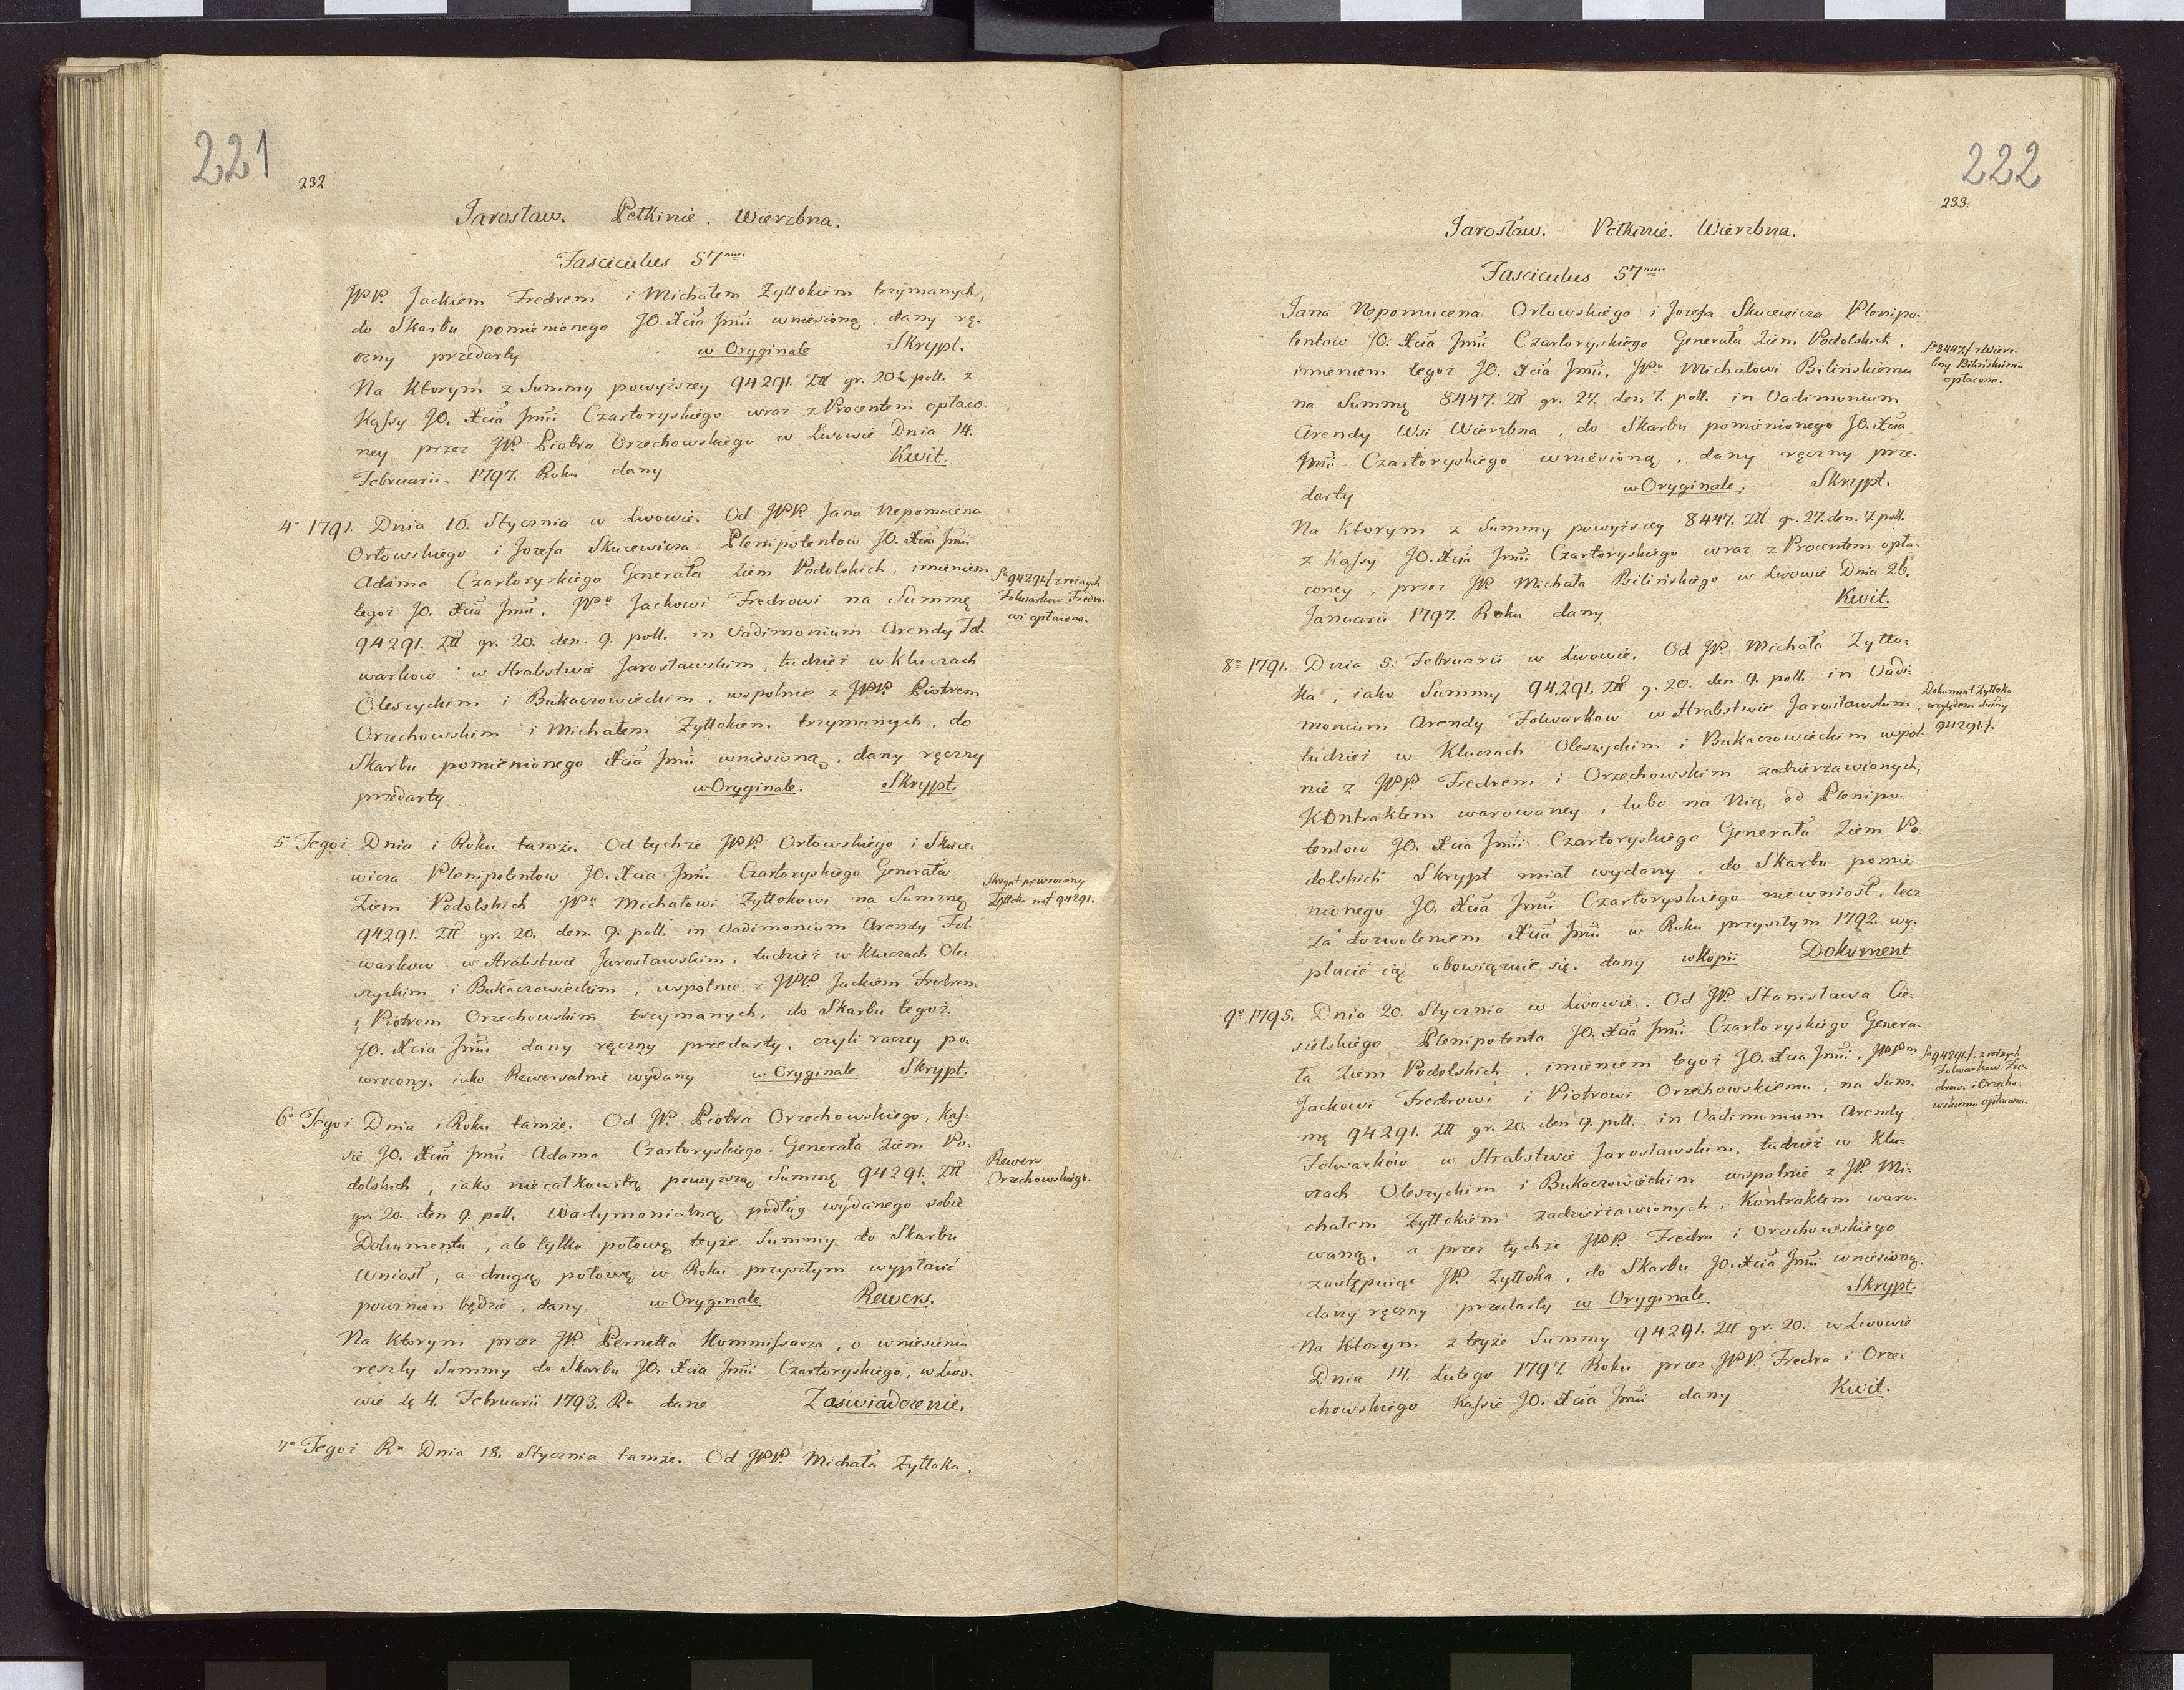 221
232
Jarosław. Pełkinie. Wierzbna.
Fasciculus 57mus.
JPP. Jackiem Fredrem i Michałem Zyttokiem trzymanych,
do Skarbu pomienionego JO. Xcia Jmći wniesioną, dany rę-
czny przedarty w Oryginale Skrypt.
Na ktorym z Summy powyższey 94291. Złł gr. 20½ poll. z
Kassy JO. Xcia Jmći Czartoryskiego wraz z Procentem opłaco-
ney przez JP. Piotra Orzechowskiego w Lwowie Dnia 14.
Februarii 1797. Roku dany Kwit.
4° 1791. Dnia 10. Stycznia w Lwowie. Od JPP. Jana Nepomucena
Orłowskiego i Jozefa Skucewicza Plenipotentow JO. Xcia Jmći
Adama Czartoryskiego Generała Ziem Podolskich, imieniem
tegoż JO. Xcia Jmći, JPu Jackowi Fredrowi na Summę
94291. Złł gr. 20. den. 9. poll. in Vadimonium Arendy Fol-
warkow w Hrabstwie Jarosławskim, tudzież w Kluczach
Oleszyckim i Bukaczowieckim, wspolnie z JPP. Piotrem
Orzechowskim i Michałem Zyttokiem trzymanych, do
Skarbu pomienionego Xcia Jmći wniesioną, dany ręczny
przedarty w Oryginale. Skrypt.
Sa 94291 f z rożnych
Folwarkow Fredro-
wi opłacona.
5° Tegoż Dnia i Roku tamże. Od tychże JPP. Orłowskiego i Skuce-
wicza Plenipotentow JO. Xcia Jmći Czartoryskiego Generała
Ziem Podolskich JPu Michałowi Zyttokowi na Summę
94291. Złł gr. 20. den. 9. poll. in Vadimonium Arendy Fol-
warkow w Hrabstwie Jarosławskim, tudzież w Kluczach Ole-
szyckim i Bukaczowieckim, wspolnie z JPP. Jackiem Fredrem
i Piotrem Orzechowskim trzymanych, do Skarbu tegoż
JO. Xcia Jmći dany ręczny przedarty, czyli raczey po-
wrocony, iako Rewersalnie wydany w Oryginale Skrypt.
Skrypt powrocony
Zyttoka na f 94291.
6° Tegoż Dnia i Roku tamże. Od JP. Piotra Orzechowskiego, Kas-
sie JO. Xcia Jmći Adama Czartoryskiego Generała Ziem Po-
dolskich, iako niecałkowitą powyższą Summę 94291. Złł
gr. 20. den 9. poll. Wadymonialną podług wydanego sobie
Dokumentu, ale tylko połowę teyże Summy do Skarbu
wniosł, a drugą połowę w Roku przyszłym wypłacić
powinien będzie, dany w Oryginale Rewers.
Rewers
Orzechowskiego.
Na ktorym przez JP. Pernetta Kommissarza, o wniesieniu
reszty Summy do Skarbu JO. Xcia Jmći Czartoryskiego, w Lwo-
wie dę 4. Februarii 1793. Ru dane Zaświadczenie.
7° Tegoż Ru Dnia 18. Stycznia tamże. Od JPP. Michała Zyttoka,
222
233.
Jarosław. Pełkinie. Wierzbna.
Fasciculus 57mus
Jana Nepomucena Orłowskiego i Jozefa Skucewicza Plenipo-
tentow JO. Xcia Jmći Czartoryskiego Generała Ziem Podolskich,
imieniem tegoż JO. Xcia Jmći, JPu Michałowi Bilińskiemu
na Summę 8447. Złł gr. 27. den 7. poll. in Vadimonium
Arendy Wsi Wierzbna, do Skarbu pomienionego JO. Xcia
Jmći Czartoryskiego wniesioną, dany ręczny prze-
darty w Oryginale. Skrypt.
Sa 8447 f z Wierz-
bny Bilińskiemu
opłacona.
Na ktorym z Summy powyższey 8447. Złł gr. 27. den. 7. poll.
z Kassy JO. Xcia Jmći Czartoryskiego wraz z Procentem opła-
coney, przez JP. Michała Bilińskiego w Lwowie Dnia 26.
Januarii 1797. Roku dany Kwit.
8° 1791. Dnia 5. Februarii w Lwowie. Od JP. Michała Zytto-
ka, iako Summy 94291. Złł g. 20. den 9. poll. in Vadi-
monium Arendy Folwarkow w Hrabstwie Jarosławskim,
tudzież w Kluczach Oleszyckim i Bukaczowieckim wspol-
nie z JPP. Fredrem i Orzechowskim zadzierżawionych,
Kontraktem warowaney, lubo na Nią od Plenipo-
tentow JO. Xcia Jmći Czartoryskiego Generała Ziem Po-
dolskich Skrypt miał wydany, do Skarbu pomie-
nionego JO. Xcia Jmći Czartoryskiego niewniosł, lecz
za dozwoleniem Xcia Jmći w Roku przyszłym 1792. wy-
płacić ią obowiązuie się, dany w Kopii Dokument
Dokument Zyttoka
względem Summy
94291 f.
9° 1795. Dnia 20. Stycznia w Lwowie. Od JP. Stanisława Cie-
sielskiego Plenipotenta JO. Xcia Jmći Czartoryskiego Genera-
ła Ziem Podolskich, imieniem tegoż JO. Xcia Jmći, JPPm
Jackowi Fredrowi i Piotrowi Orzechowskiemu, na Sum-
mę 94291. Złł gr. 20. den 9. poll. in Vadimonium Arendy
Folwarków w Hrabstwie Jarosławskim, tudzież w Klu-
czach Oleszyckim i Bukaczowieckim wspolnie z JP. Mi-
chałem Zyttokiem zadzierżawionych, Kontraktem waro-
waną, a przez tychże JPP. Fredra i Orzechowskiego
zastępuiąc JP. Zyttoka, do Skarbu JO. Xcia Jmći wniesioną,
dany ręczny przedarty w Oryginale Skrypt.
Sa 94291 f. z rożnych
Folwarkow Fre-
drowi i Orzecho-
wskiemu opłacona.
Na ktorym z teyże Summy 94291. Złł gr. 20. w Lwowie
Dnia 14. Lutego 1797. Roku przez JPP. Fredra i Orze-
chowskiego Kassie JO. Xcia Jmći dany Kwit.